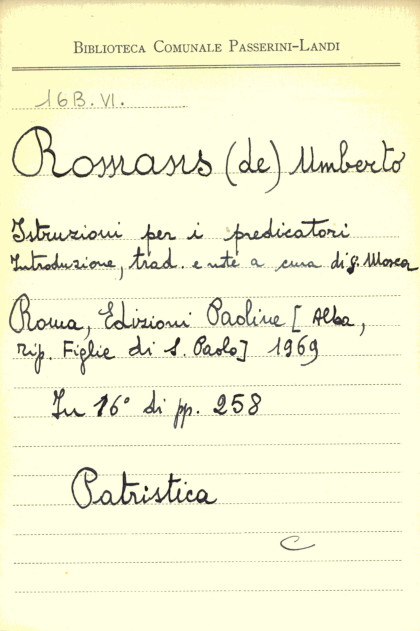 BIBLIOTECA COMUNALE PASSERINI-LANDI
16B.VI.
Romans (de) Umberto
Istruzioni per i predicatori
Introduzione, trad. e note a cura di G. Mosca
Roma, Edizioni Paoline [Alba,
tip. Figlie di S. Paolo] 1969
In 16° di pp. 258
Patristica
C